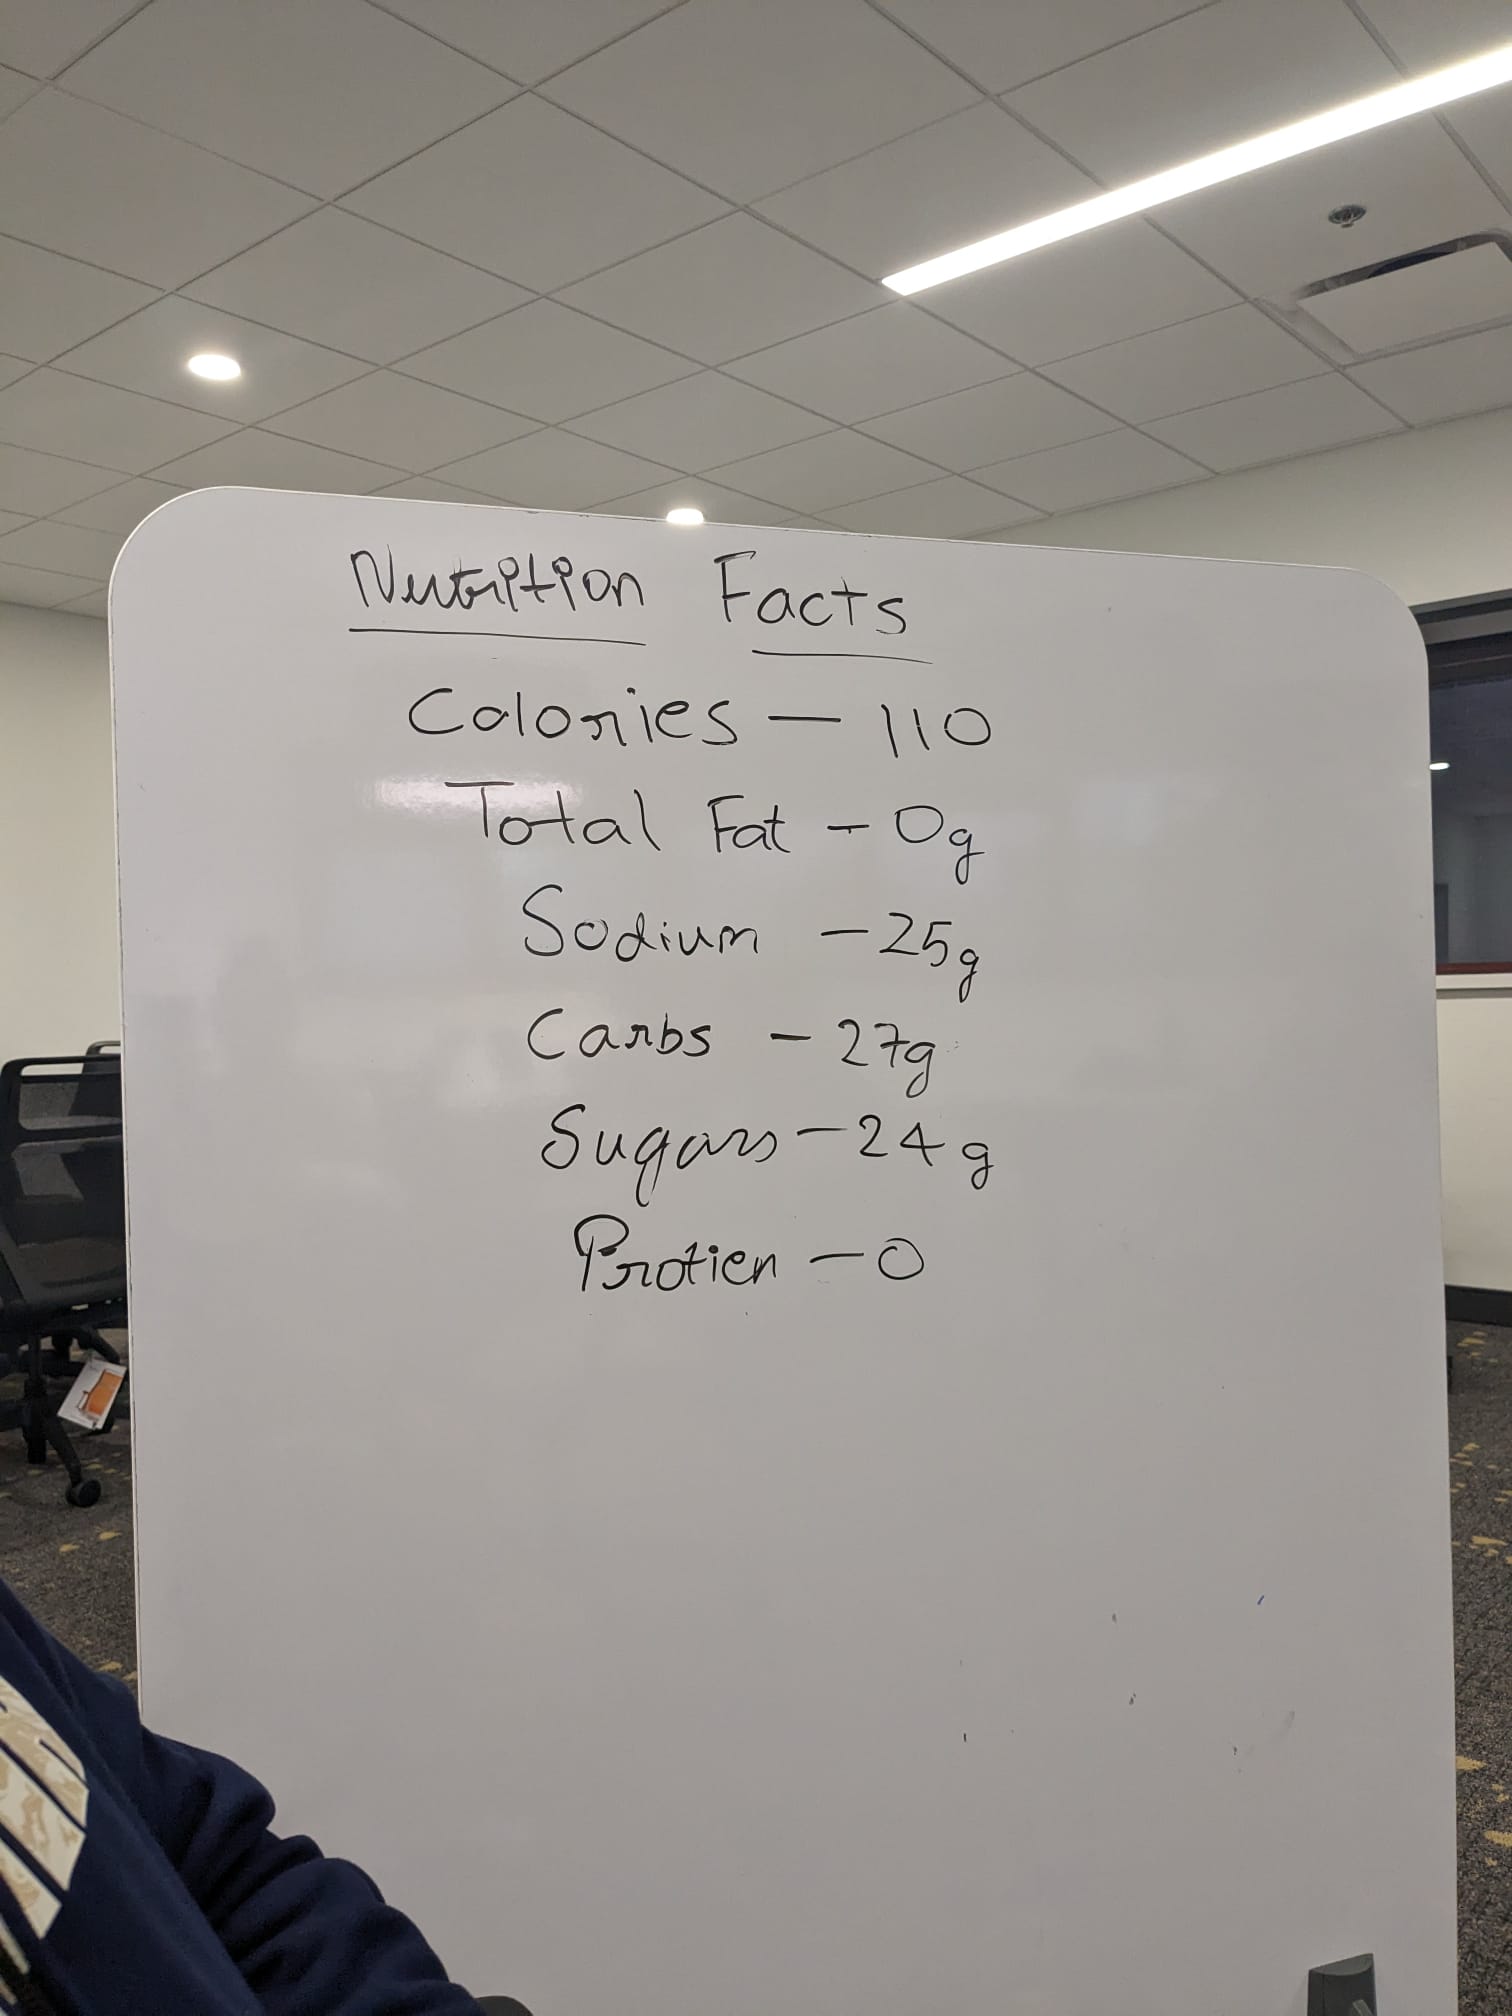 Nutrition Facts
Calories — 110
Total Fat - 0g
Sodium - 25g
Carbs - 27g
Sugars - 24g
Protien - 0